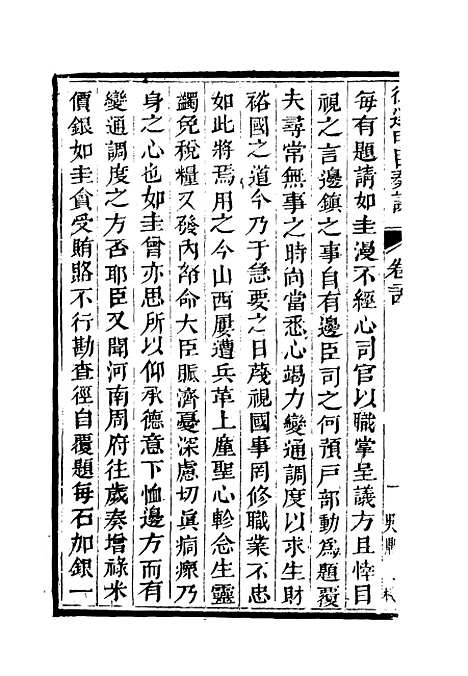 每有題請如圭漫不經心司官以職掌呈議方且悻目
視之言邊鎮之事自有邊臣司之何預戶部動為題覆
夫尋常無事之時尚當悉心竭力變通調度以求生財
裕國之道今乃于急要之日蔑視國事罔修職業不忠
如此將焉用之今山西屢遭兵革上廑聖心軫念生靈
蠲免稅糧又發內帑命大臣賑濟憂深慮切眞痌瘝乃
身之心也如圭曾亦思所以仰承德意下恤邊方而有
變通調度之方否耶臣又聞河南周府往歲奏增祿米
價銀如圭貪受賄賂不行勘查徑自覆題每石加銀一